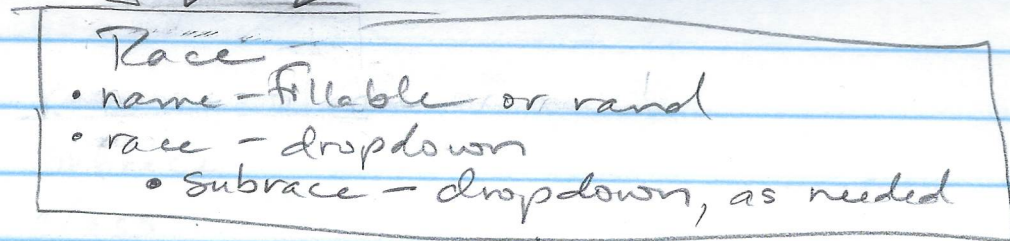 Race
• name - fillable or rand
• race - dropdown
• subrace - dropdown, as needed